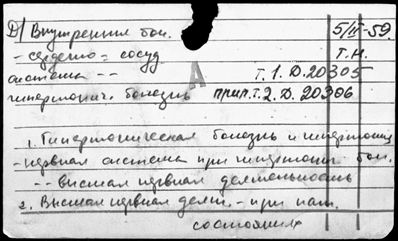 Д) Внутренния бол. 5/III-59.
- сердечно-сосуд. Т.Н.
система -- Т.1. Д.20305
гипертонич. болезнь прил.т.2. Д.20306
А
1. Гипертоническая болезнь и
- нервная система при гипертонич. бол.
-- высшая нервная деятельность
2. Высшая нервная деят. - при пат.
состояниях